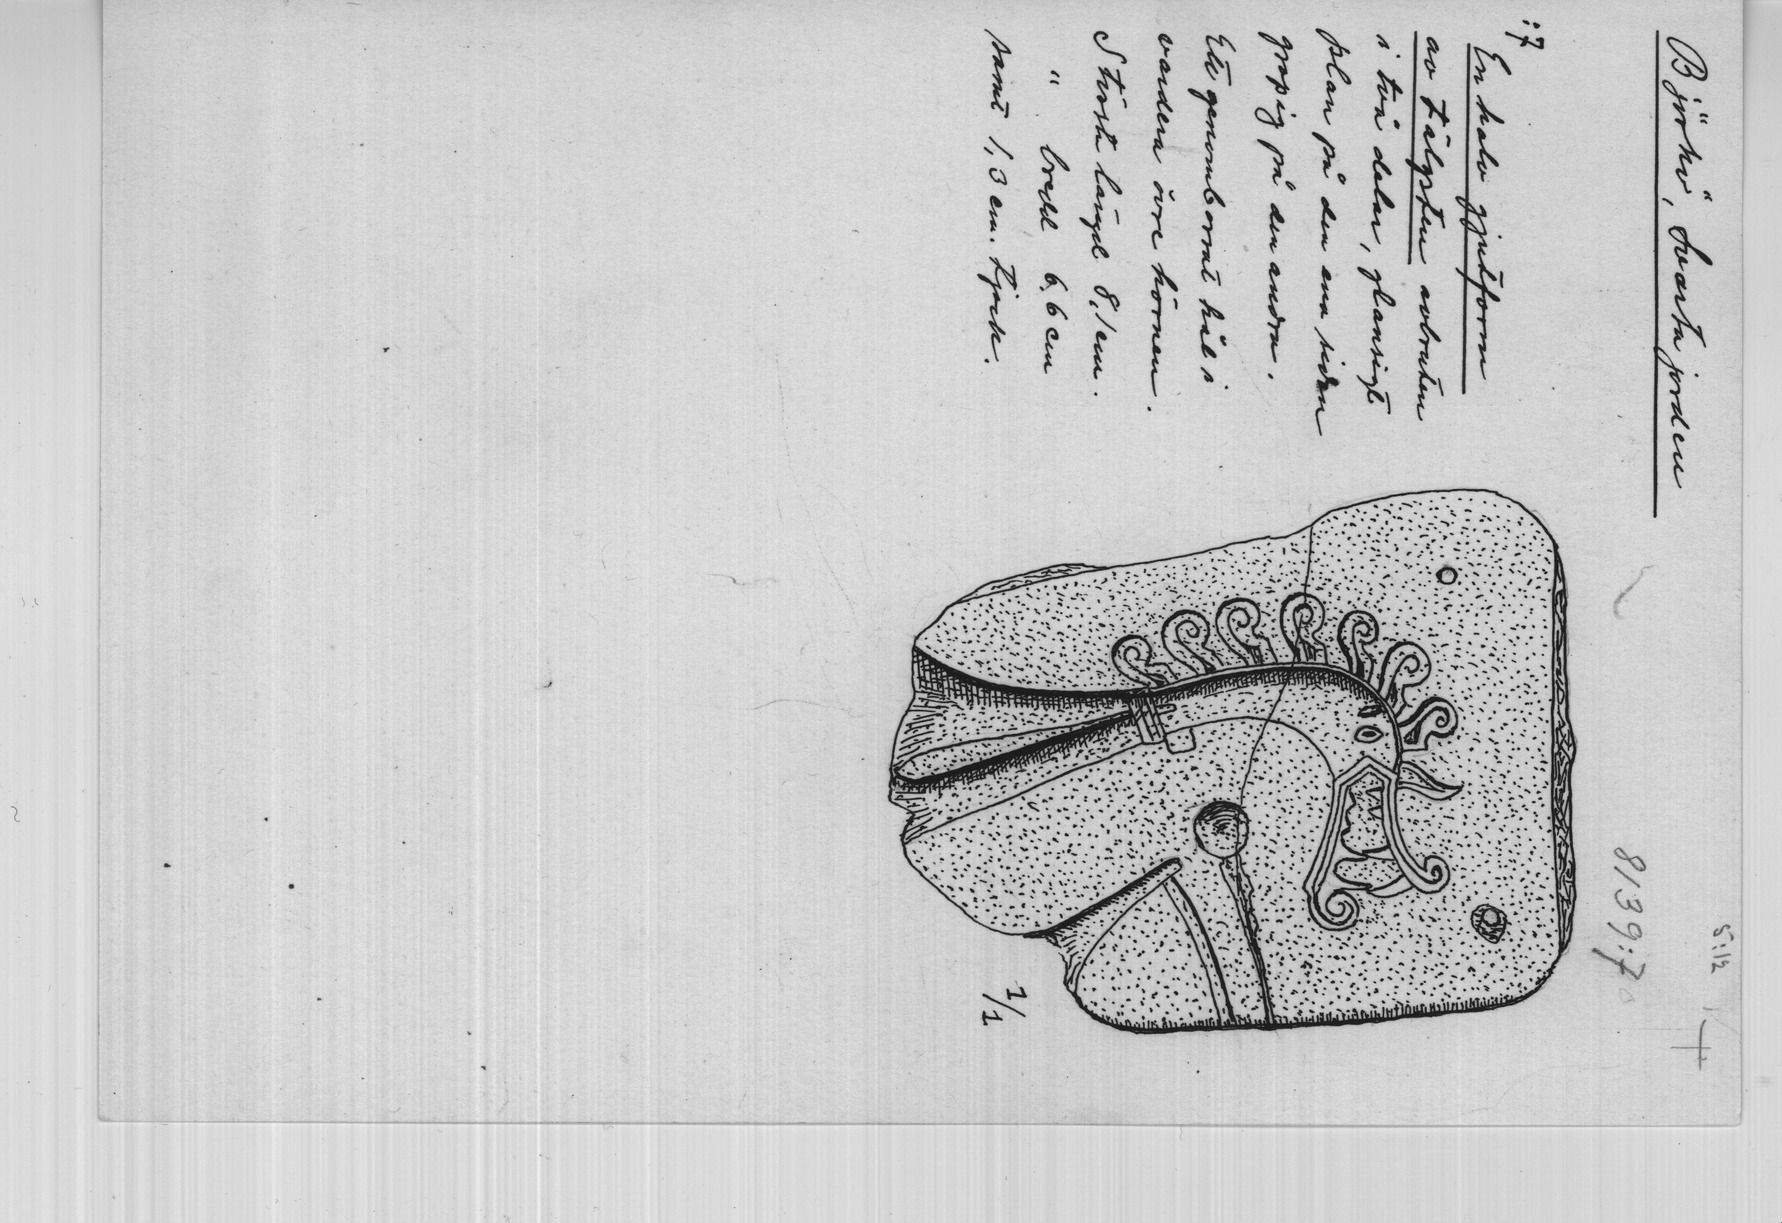 Björkö, Svarta jorden
5:12
8139:7
:7
En halv gjutform
av tälgsten avbruten
i två delar, glansigt
plan på den ena sidan
gropig på den andra.
Ett genomborrat hål i
vardera övre hörnen.
Största längd 8,1 cm.
" bredd 6,6 cm
samt 1,3 cm. tjock.
1/1